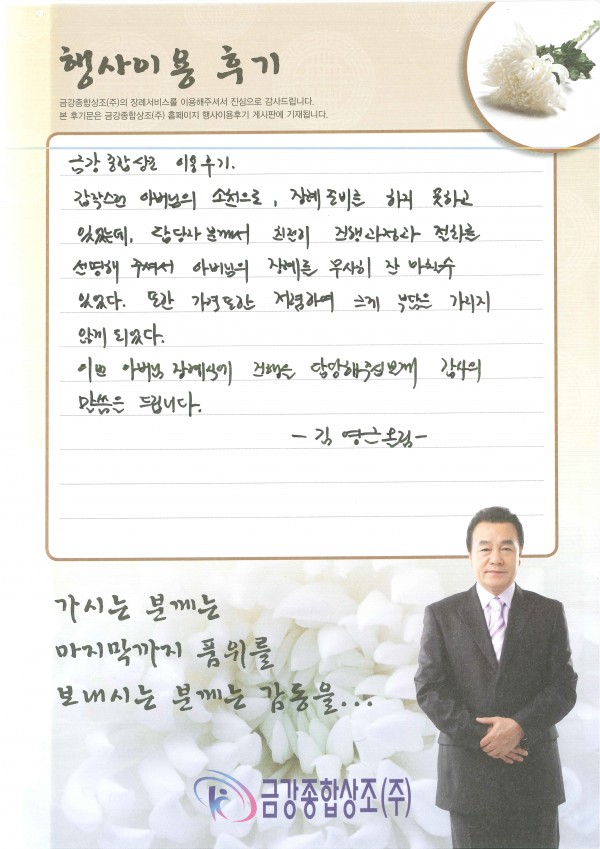 행사이용 후기
금강종합상조(주)의 장례서비스를 이용해주셔서 진심으로 감사드립니다.
본 후기문은 금강종합상조(주) 홈페이지 행사이용후기 게시판에 기재됩니다.
금강 종합상조 이용후기.
갑작스런 아버님의 소천으로, 장례준비를 하지 못하고
있었는데, 담당자분께서 친절히 진행과정과 절차를
설명해 주셔서 아버님의 장례를 무사히 잘 마칠수
있었다. 또한 가격또한 저렴하여 크게 부담을 가지지
않게 되었다.
이번 아버님 장례식에 진행을 담당해주신분께 감사의
말씀은 드립니다.
- 김 영근 올림 -
가시는 분께는
마지막까지 품위를
보내시는 분께는 감동을...
금강종합상조(주)